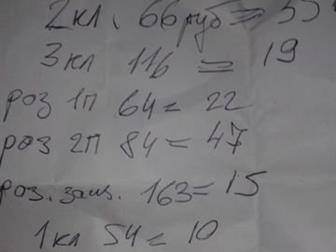 2кл. 66руб =
3кл 116 = 19
роз 1п 64 = 22
роз 2п 84 = 47
роз. заиз. 163 = 15
1кл 54 = 10